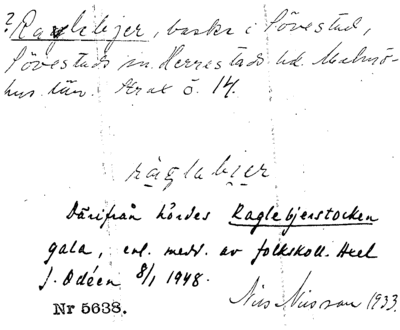 ? Raglebjer, backe i Sövestad,
Sövestads sn. Herrestads hd. Malmö-
hus län. Ekbl. ö. 14.
råglabjer
Därifrån hördes Raglebjerstocken
gala, enl. medd. av folkskoll. Axel
J. Odéen 8/1 1948.
Nr 5638.
Nils Nilsson 1933.